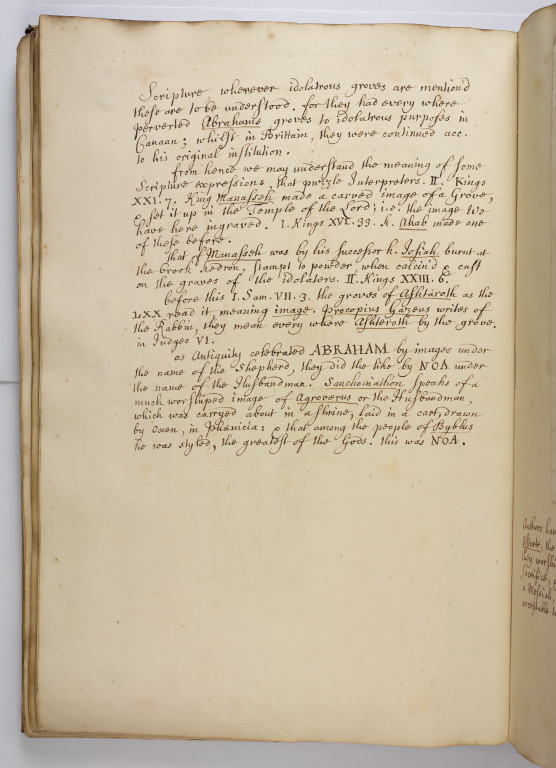 Scripture wherever idolatrous groves are mention'd
these are to be understood. for they had every where
perverted Abrahams groves to idolatrous purposes in
Canaan; whilst in Brittain, they were continued acc.
to his original institution.
from hence we may understand the meaning of some
Scripture expressions, that puzzle Interpreters. II. Kings
XXI. 7. King Manasseh made a carved image of a Grove,
& set it up in the Temple of the Lord; i.e. the image we
have here ingraved. I. Kings XVI. 33. k. Ahab made one
of these before.
that of Manasseh was by his successor k. Josiah burnt at
the brook Kedron, stampt to powder, when calcin'd & cast
on the graves of the idolaters. II. Kings XXIII. 6.
before this I. Sam. VII. 3. the groves of Ashtaroth as the
LXX read it, meaning image. Procopius Gazeus writes of
the Rabbin, they mean every where Ashteroth by the grove.
in Judges VI.
as Antiquity celebrated ABRAHAM by images under
the name of the Shepherd, they did the like by NOA under
the name of the Husbandman. Sanchoniathon speaks of a
much worshiped image of Agroverus or the Husbandman,
which was carryed about in a shrine, laid in a cart, drawn
by Oxen, in Phœnicia: & that among the people of Byblus
he was styled, the greatest of the Gods. this was NOA.
Authors hav
the
they worshi
Sacrifice,
a Messiah,
acceptable to